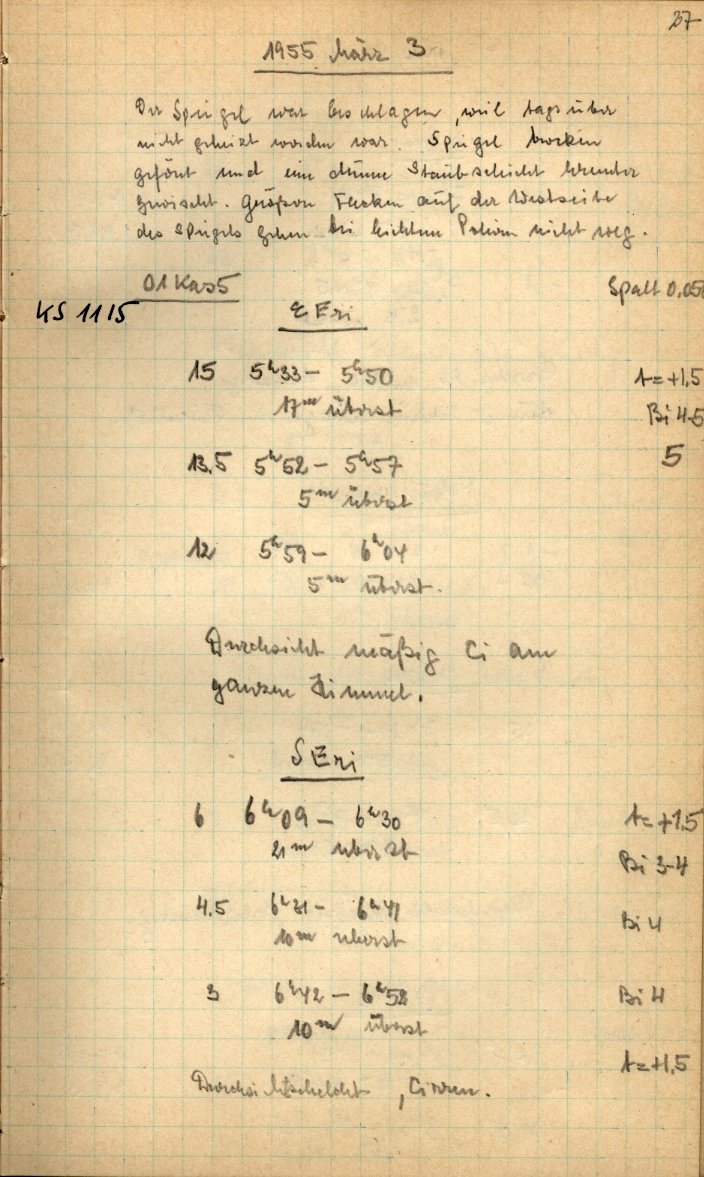 37
1955 März 3
Der Spiegel war beschlagen, weil tagsüber
nicht geheizt worden war. Spiegel trocken
gefönt und eine dünne Staubschicht herunter
gewischt. Größere Flecken auf der Westseite
des Spiegels gehen bei leichtem Polieren nicht weg.
01 Kas5 Spalt 0,05
KS 1115
ε Eri
15 5h33 – 5h50 t=+1,5
17m überst Bi 4-5
13,5 5h52 – 5h57 5
5m überst
12 5h59 – 6h04
5m überst.
Durchsicht mäßig Ci am
ganzen Himmel.
δ Eri
6 6h09 – 6h30 t=+1,5
21m überst Bi 3-4
4,5 6h31 – 6h41 Bi 4
10m überst
3 6h42 – 6h52 Bi 4
10m überst
t=+1,5
Durchsicht schlecht, Cirren.